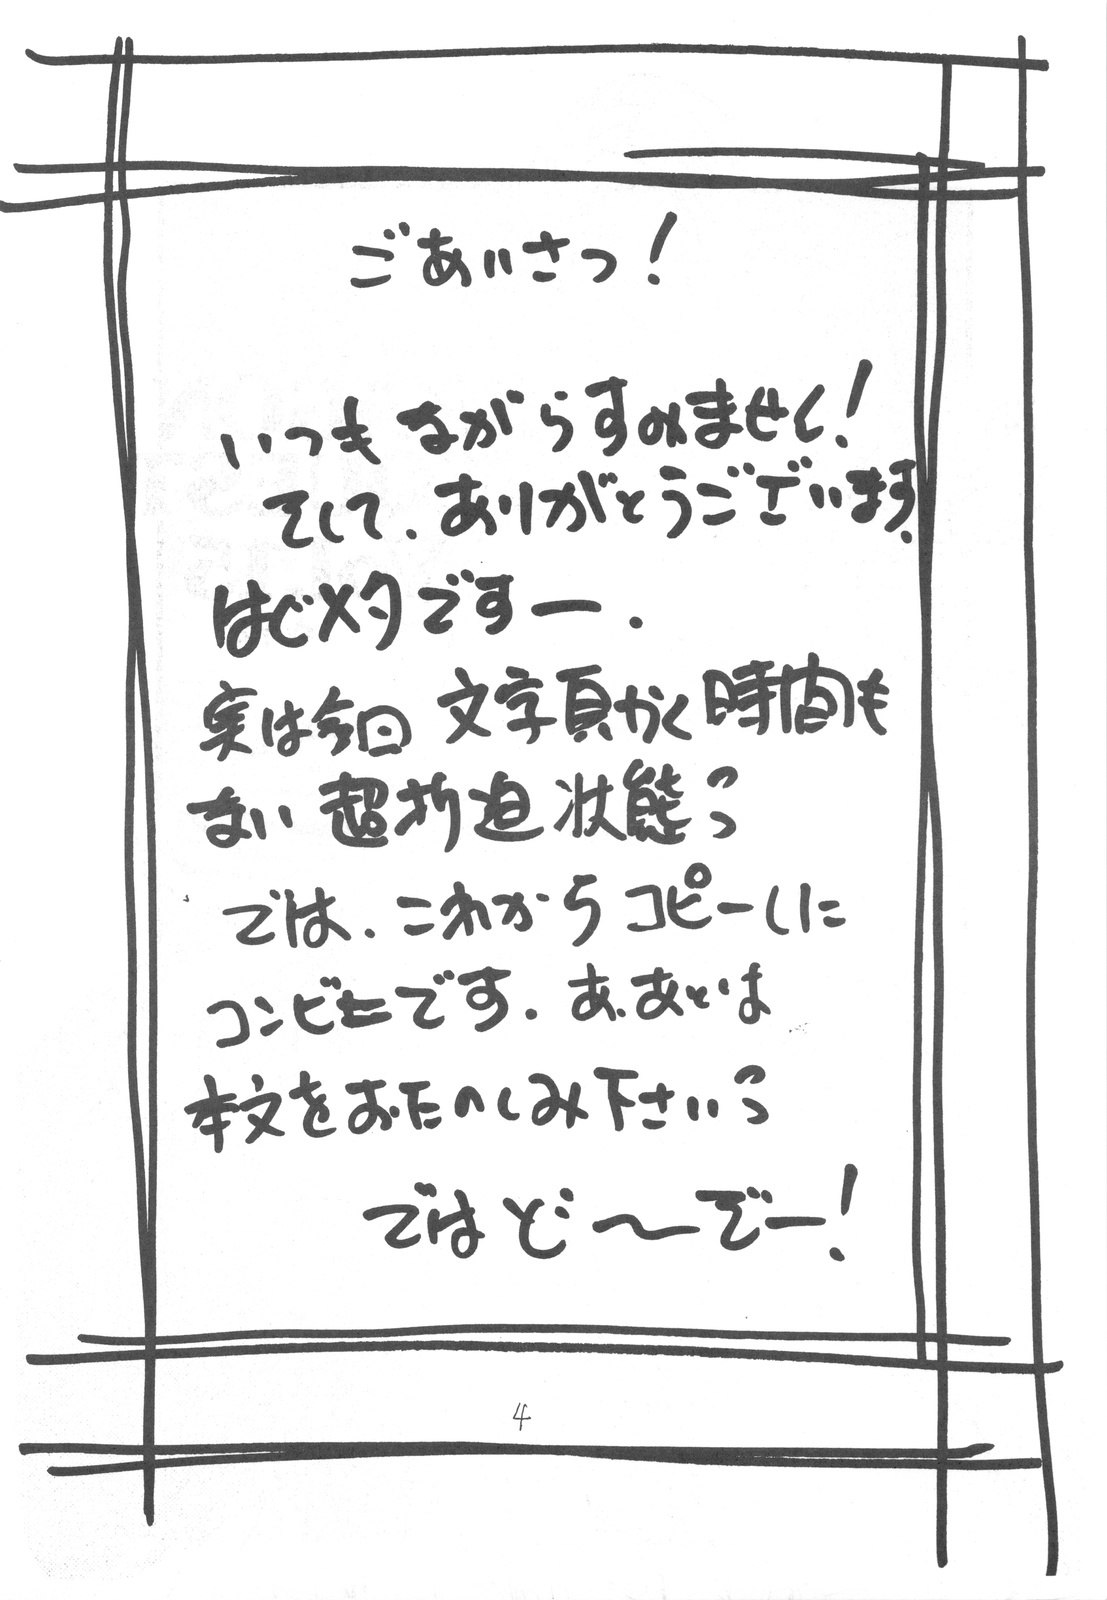 ごあいさつ!
いつもながらすみません!
そして、ありがとうございます。
はじメタですー.
実は今回 文字頁かく時間も
まい 超折迫状態っ
では、これからコピーしに
コンビニです. あ、あとは
本文をおたのしみ下さいっ
ではど〜ぞー!
4